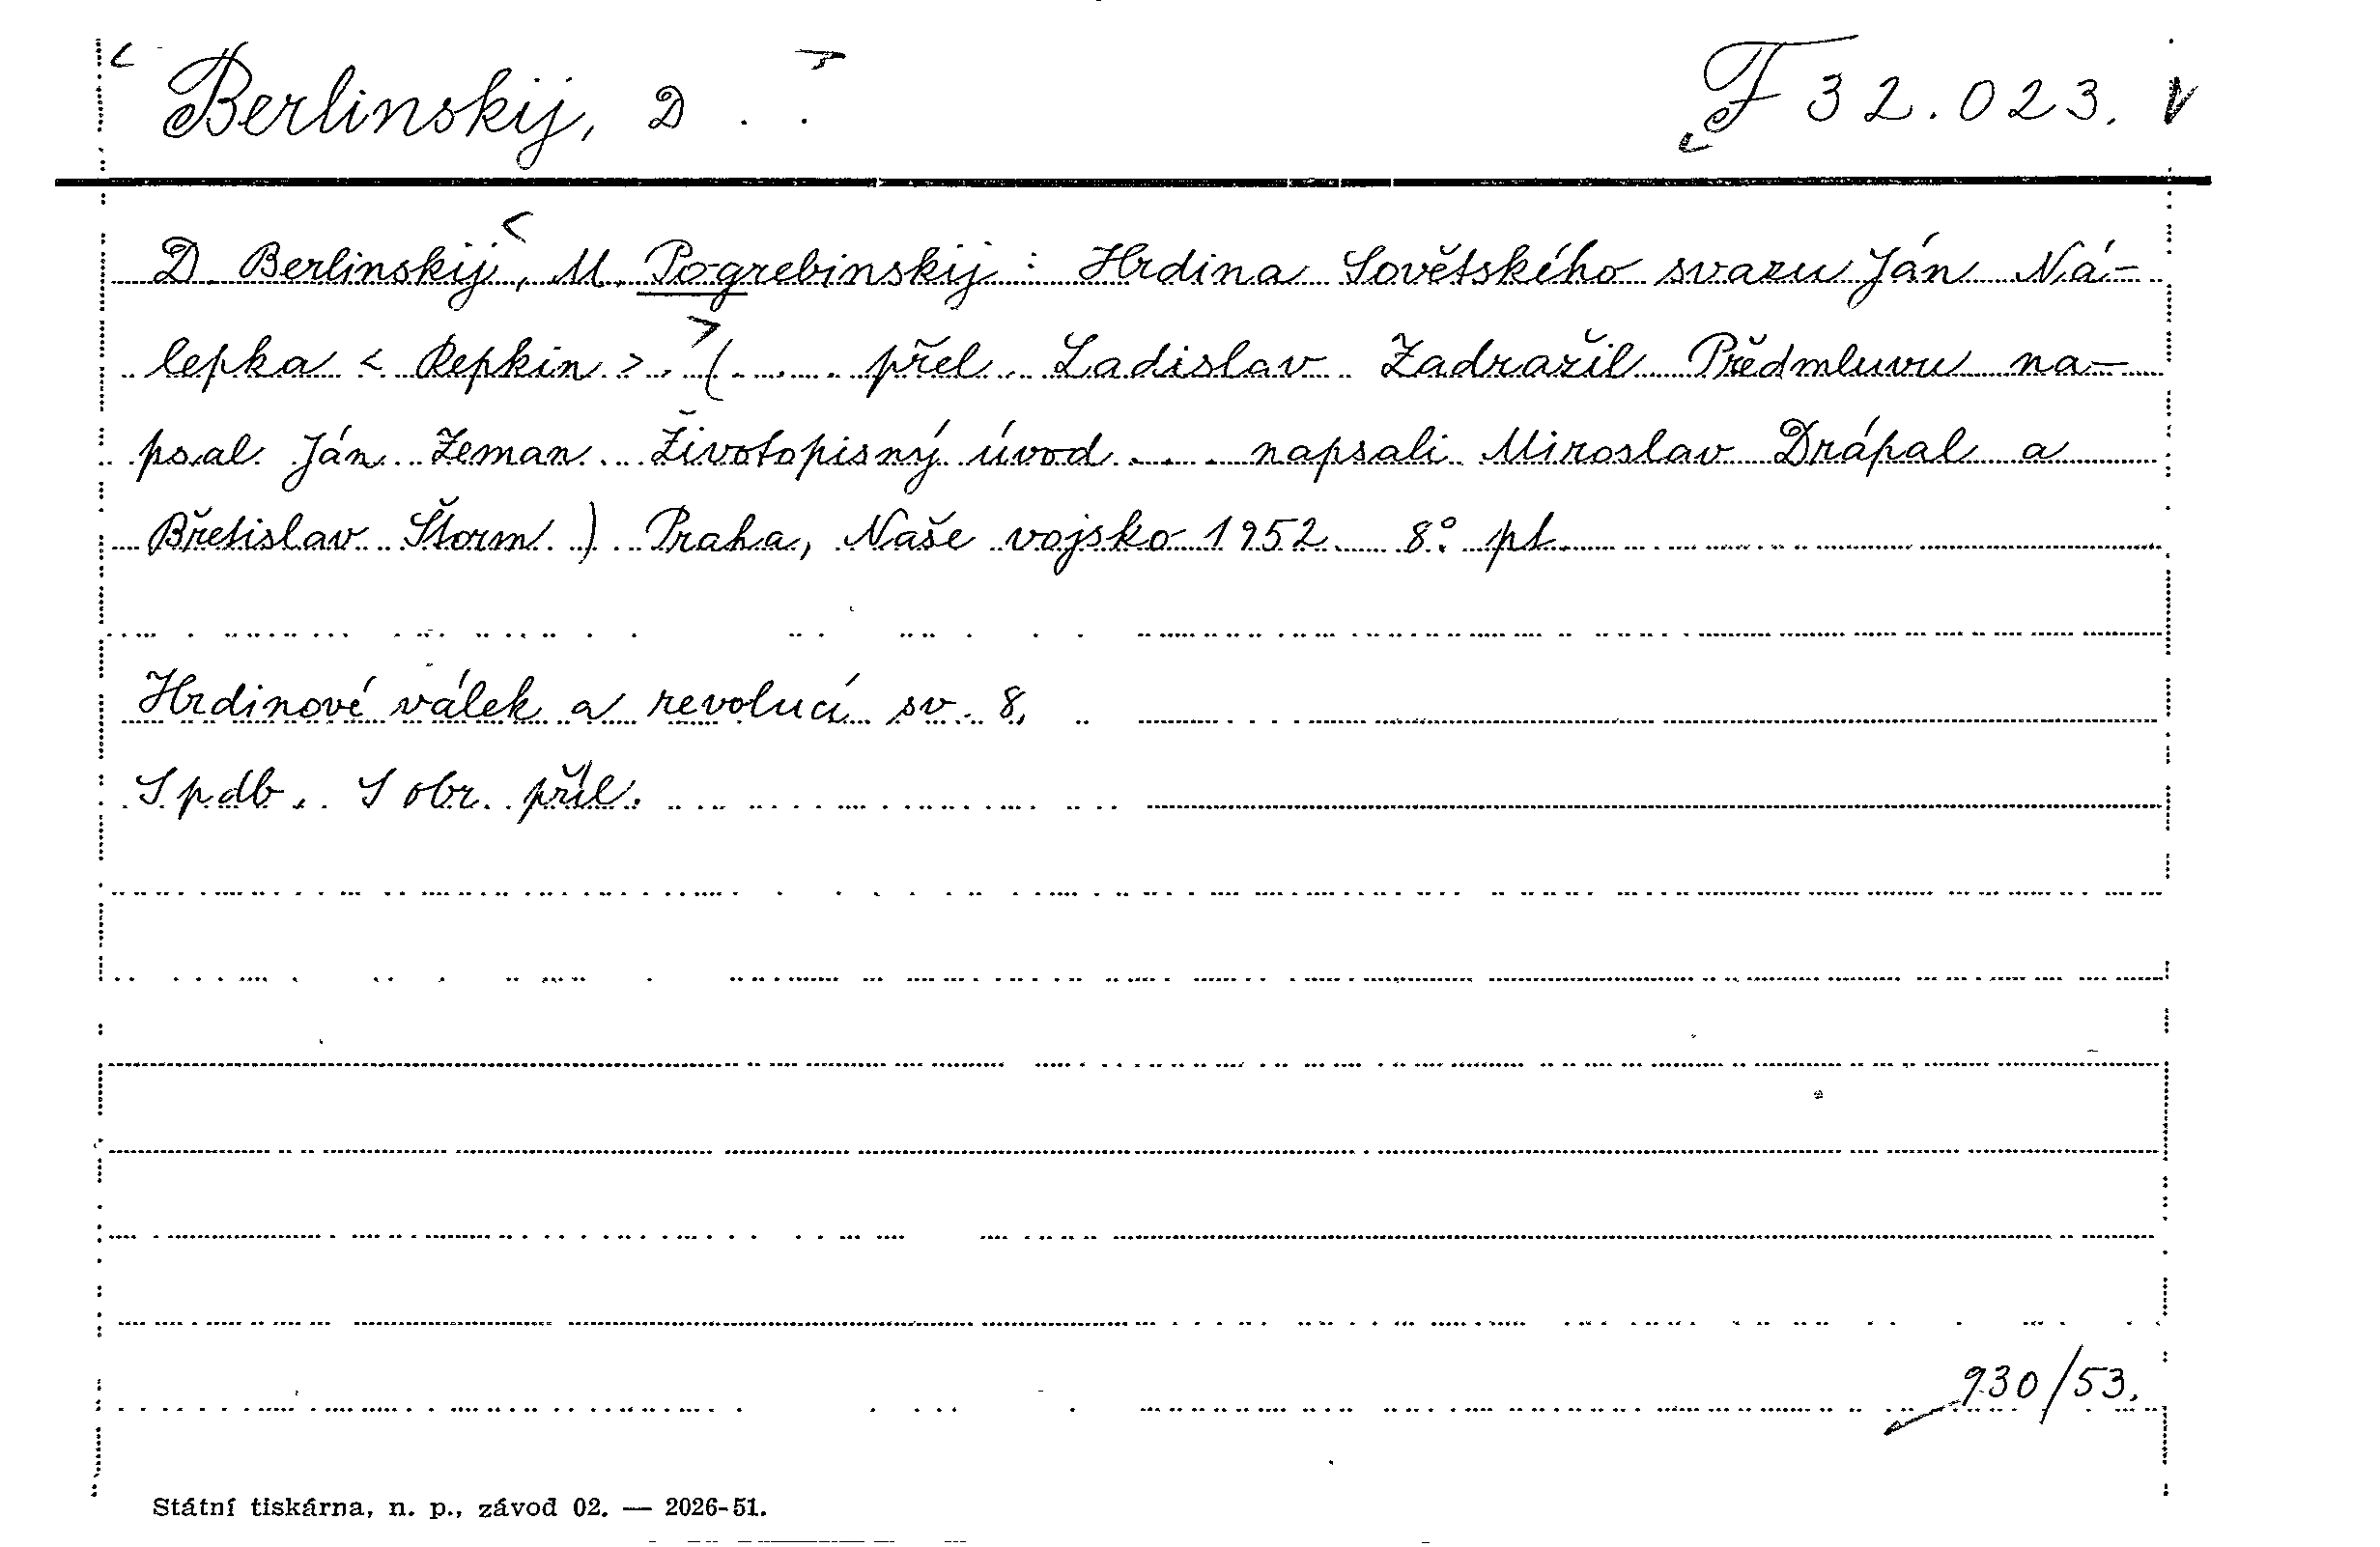 Berlinskij, D . .
F 32.023.
D. Berlinskij, M. Pogrebinskij : Hrdina Sovětského svazu Ján Ná-
lepka < Repkin >. ( . . . přel. Ladislav Zadražil Předmluvu na-
psal Ján Zeman. Životopisný úvod . . . napsali Miroslav Drápal a
Břetislav Štorm ) Praha, Naše vojsko 1952. 8° pt.
Hrdinové válek a revolucí sv. 8.
S pdb. S obr. příl.
930/53.
Státní tiskárna, n. p., závod 02. — 2026-51.